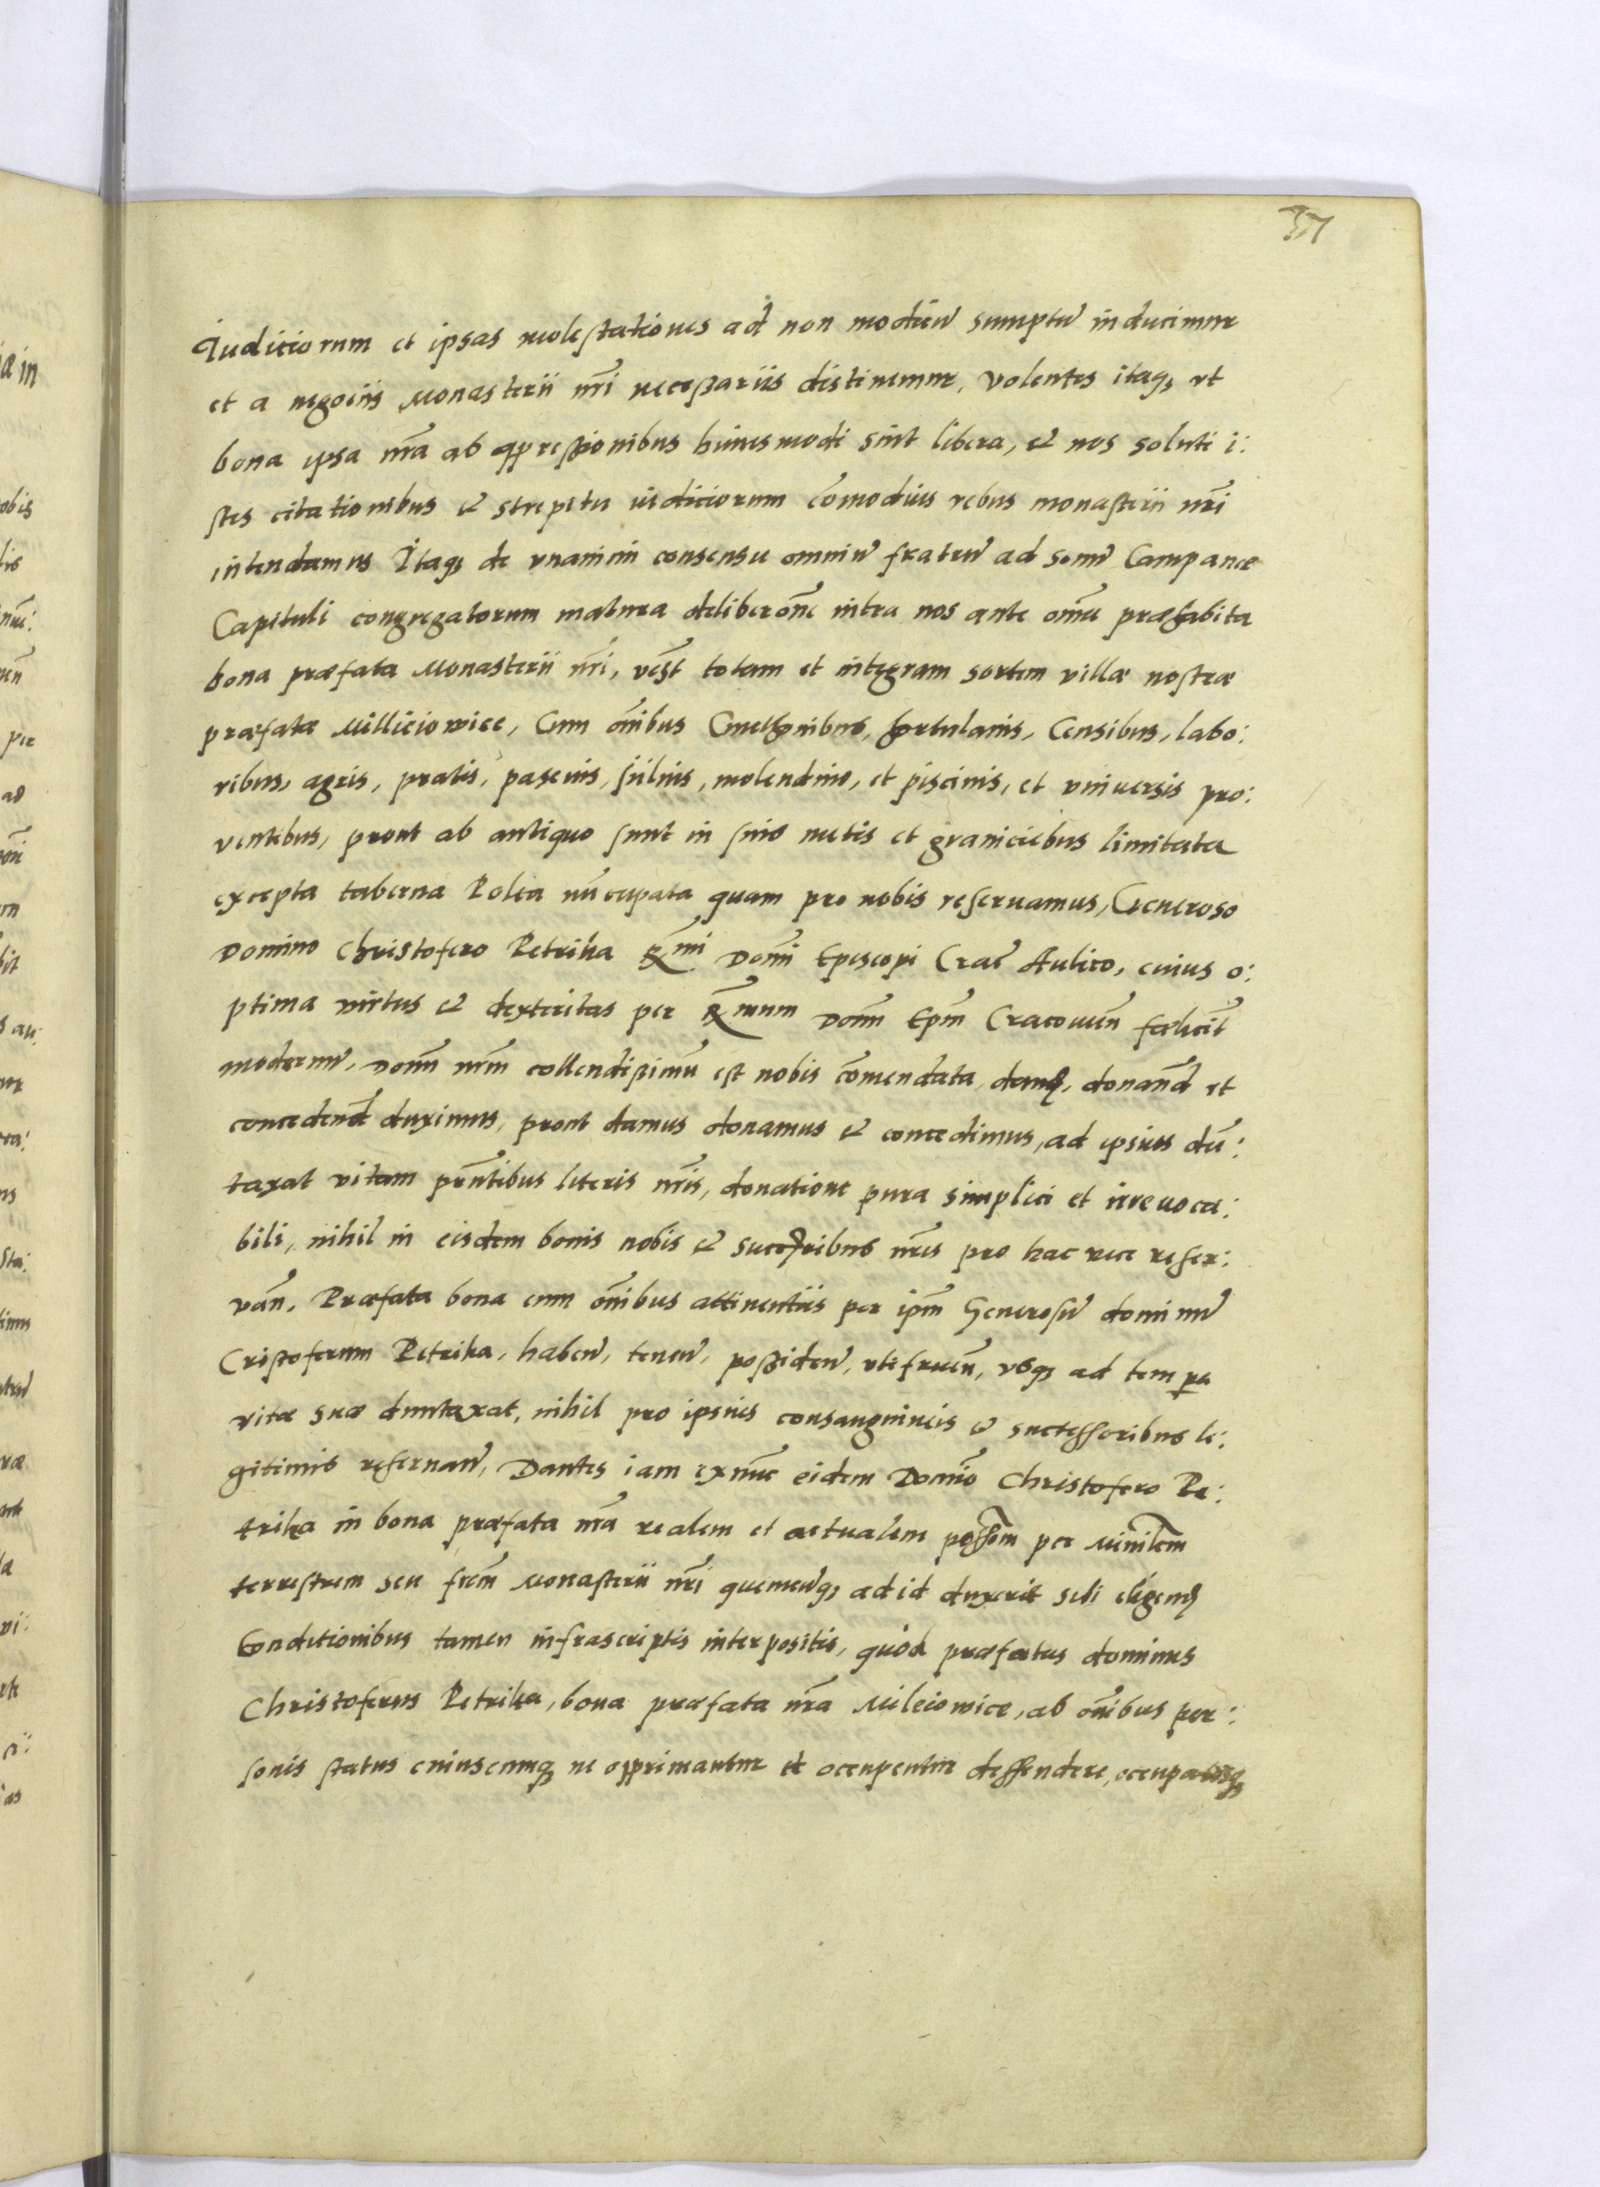 37
Iuditiorum et ipsas molestationes ad non modicū sumptū inducimur
et a negociis Monasterii nr̄i necessariis distinemur, volentes itaq; vt
bona ipsa nr̄a ab oppressionibus huiusmodi sint libera, et nos soluti i:
stes citationibus et strepetu iudiciorum com̄odius rebus monasterii nr̄i
intendamus Itaq; de vnanimi consensu omniū fratrū ad sonū Campanæ
Capituli congregatorum matura deliberōne intra nos ante om̄ia præhabita
bona præfata Monasterii nr̄i, vꝫt totam et integram sortem villæ nostræ
præfatæ Milliciowice, Cum om̄ibus Cmethonibus, hortulanis, Censibus, labo:
ribus, agris, pratis, pascuis, siluis, molendino, et piscinis, et vniuersis pro:
ventibus, prout ab antiquo sunt in suis metis et graniciebus limitata
excepta taberna Rolka nūcupata quam pro nobis reseruamus, Generoso
Domino Christofero Retrika Rm̄i Dom̄i Episcopi Crac̄ Aulico, cuius o:
ptima virtus et dexteritas per Rm̄um Dom̄ Ep̄m Cracouien̄ fœlicit̄
modernū, Dom̄ nr̄m collendisimū est nobis com̄endata, dand̄, donand̄ et
concedend̄ duximus, prout damus donamus et concedimus, ad ipsius dū:
taxat vitam pn̄tibus literis nr̄is, donatione pura simplici et irreuoca:
bili, nihil in eisdem bonis nobis et successoribus nr̄is pro hac vice reser:
van̄. Præfata bona cum om̄ibus attinentiis per ip̄m Generosū dominū
Cristoferum Retrika, haben̄, tenen̄, possiden̄, vtifruen̄, vsq; ad tempora
vitæ suæ duntaxat, nihil pro ipsius consanguineis et successoribus le:
gitimis reseruan̄, Dantes iam exnunc eidem Domīo Christofero Re:
trika in bona præfata nr̄a realem et actualem possessionem per Ministerialem
terrestrem seu fr̄em Monasterii nr̄i quemcūq; ad id duxerit sibi eligend̄
Conditionibus tamen infrascriptis interpositis, quòd præfatus dominus
Christoferus Retrika, bona præfata nr̄a Milciowice, ab om̄ibus per:
sonis status cuiuscunq; ne opprimantur et occupentur deffendere, occupataq;